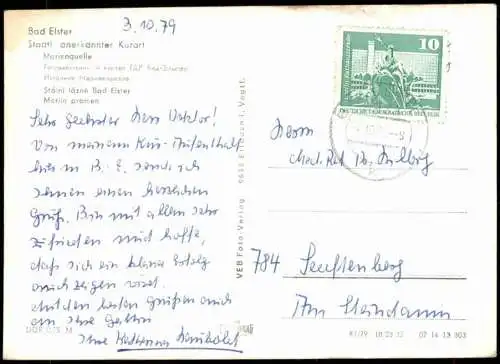 3.10.79
Bad Elster
Staatl. anerkannter Kurort
Marienquelle
Státní lázně Bad Elster
Mariin pramen
Sehr geehrter Herr Doktor!
Von meinem Kur-Aufenthalt
hier in B. E. sende ich
Ihnen einen herzlichen
Gruß. Bin mit allem sehr
zufrieden und hoffe,
daß sich ein kleiner Erfolg
auch zeigen wird.
Mit den besten Grüßen auch
an Ihre Gattin
Ihre
VEB Foto-Verlag 9652 Erlbach i. Vogtl.
10
DEUTSCHE DEMOKRATISCHE REPUBLIK
Herrn
Med. Rat Dr.
784 Senftenberg
Am Steindamm